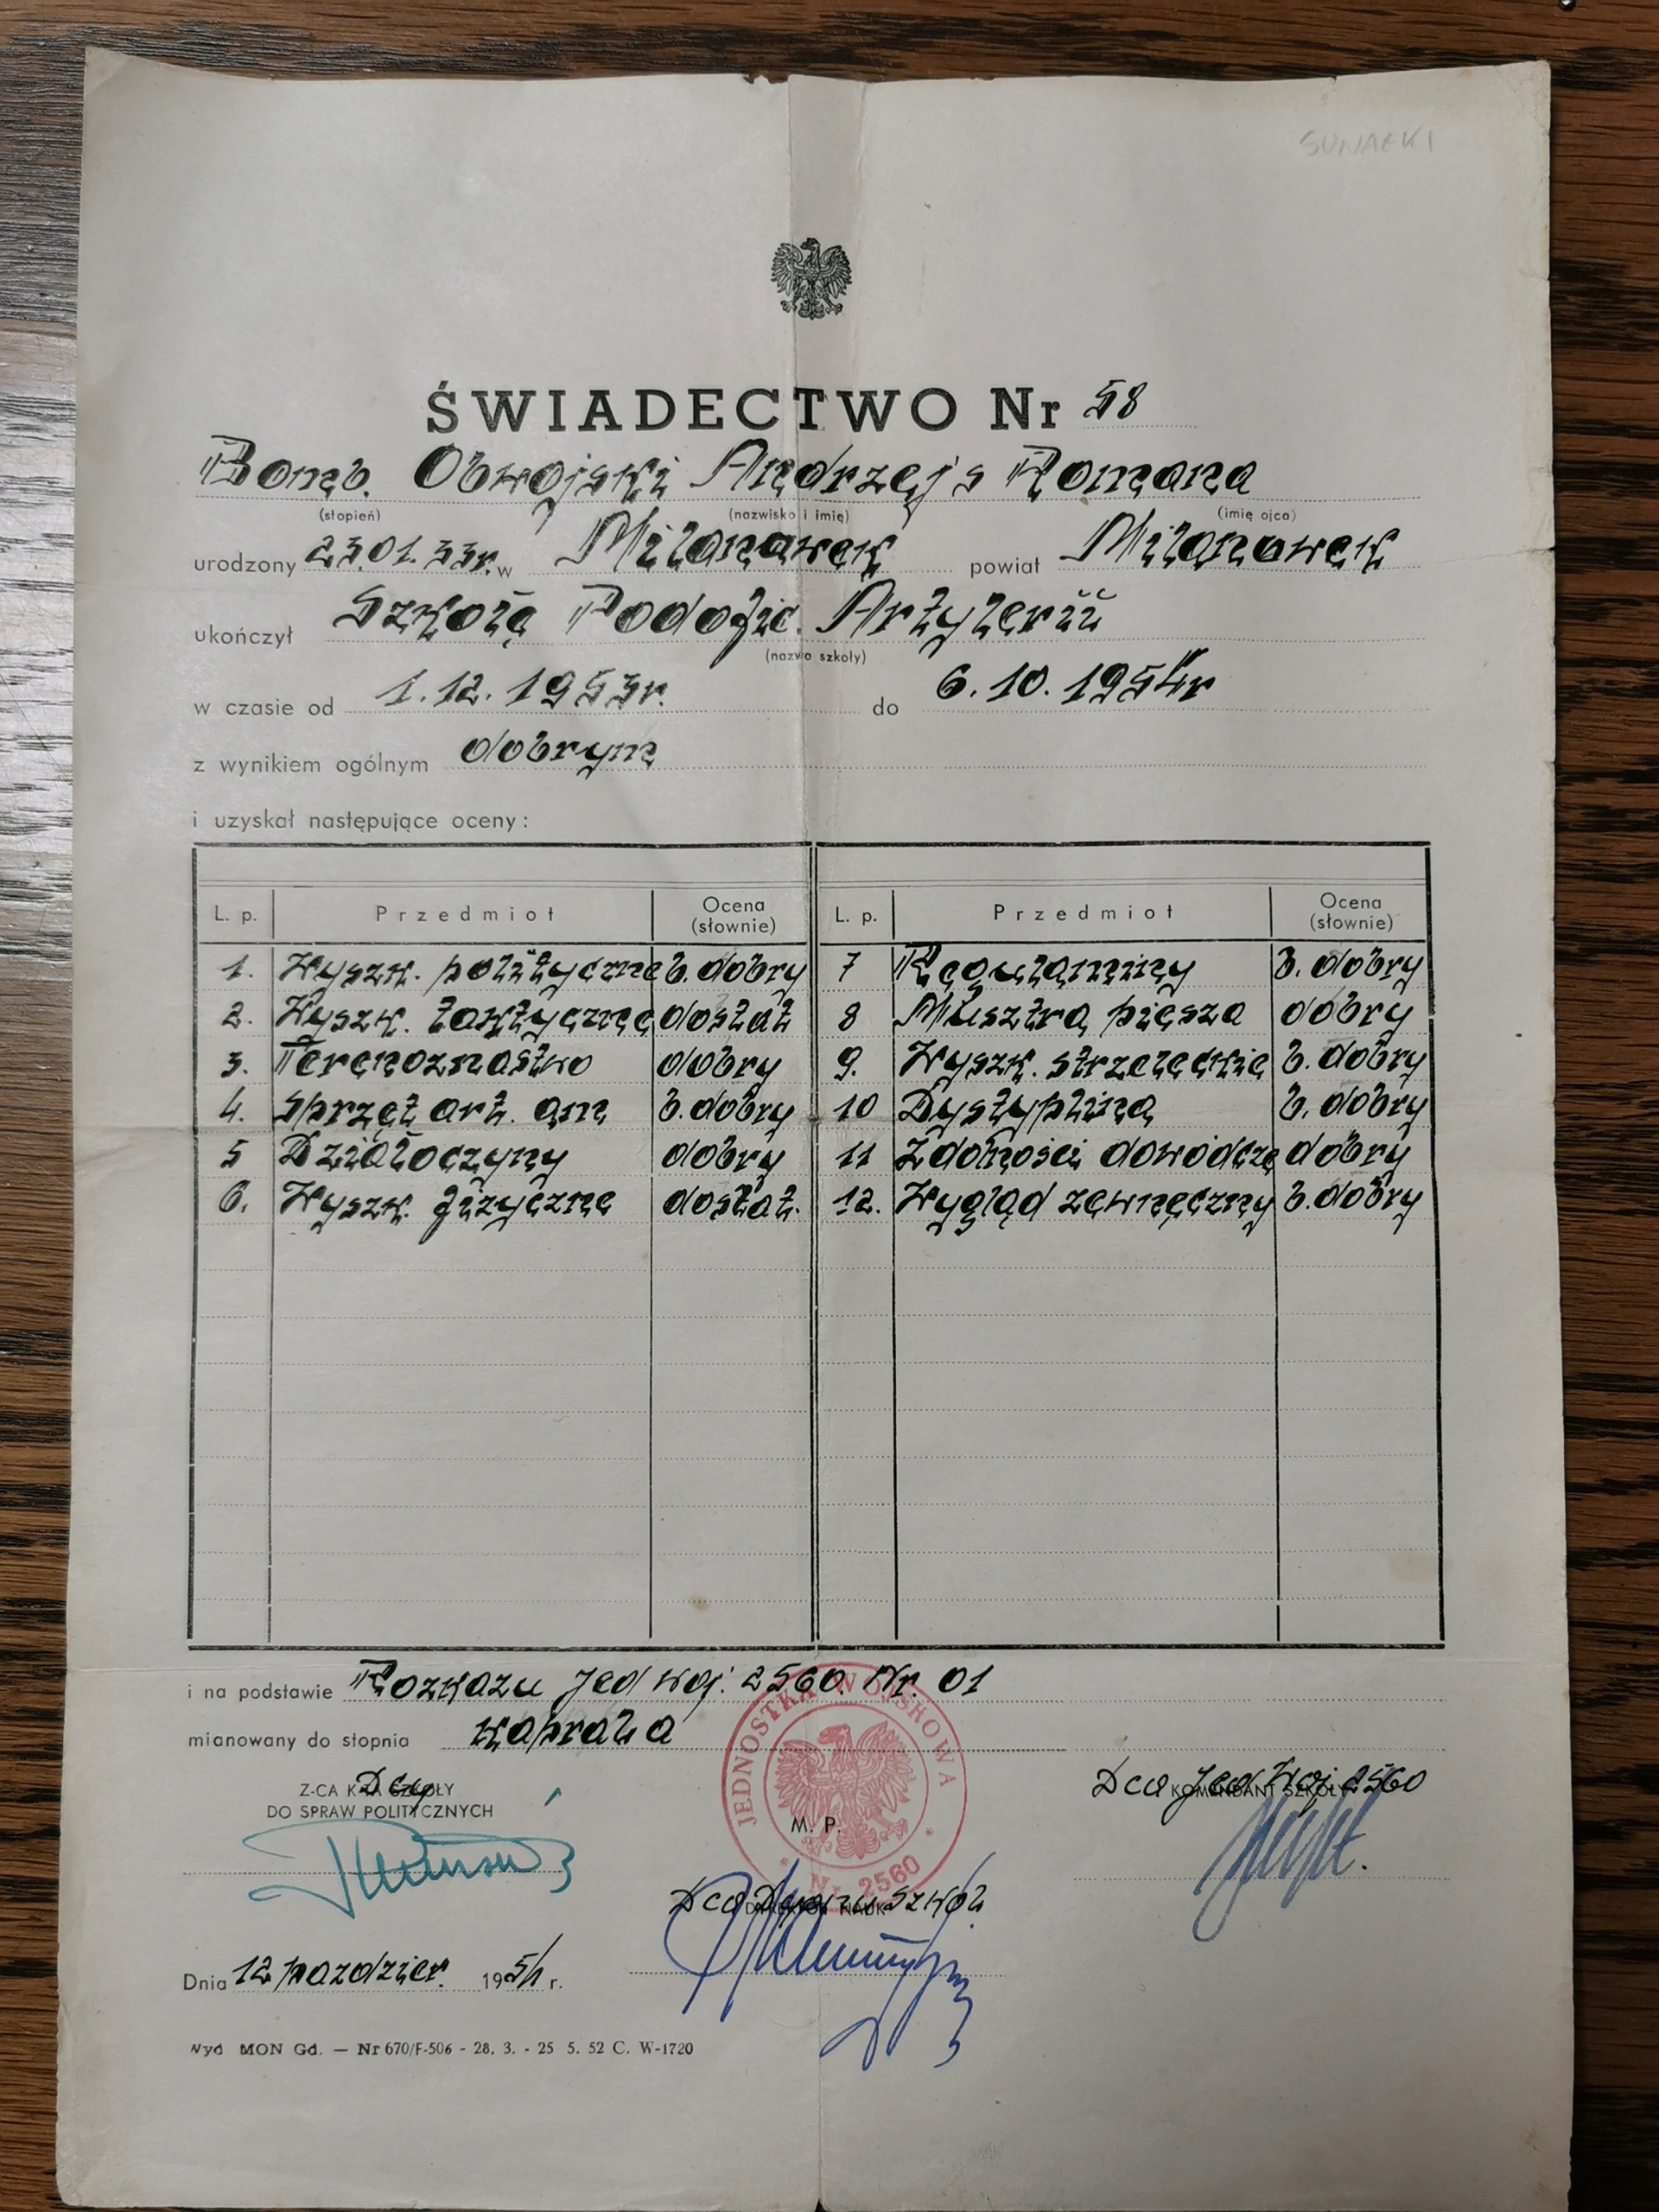 SUWAŁKI
ŚWIADECTWO Nr 58
Bomb. Obwojski Andrzej s Romana
(stopień) (nazwisko i imię) (imię ojca)
urodzony 23.01.33r. w Milanówek powiat Milanówek
ukończył Szkołę Podofic. Artylerii
(nazwa szkoły)
w czasie od 1.12.1953r. do 6.10.1954r
z wynikiem ogólnym dobrym
i uzyskał następujące oceny:
L. p. Przedmiot Ocena (słownie) L. p. Przedmiot Ocena (słownie)
1. Wyszk. polityczne b. dobry 7 Regulaminy b. dobry
2. Wyszk. taktyczne dostat 8 Musztra piesza dobry
3. Terenoznastwo dobry 9. Wyszk. strzeleckie b. dobry
4. Sprzęt art. am b. dobry 10 Dyscyplina b. dobry
5 Działoczyny dobry 11 Zdolności dowódcze dobry
6. Wyszk. fizyczne dostat. 12. Wygląd zewnęczny b. dobry
i na podstawie Rozkazu Jed woj. 2560. Nr. 01
mianowany do stopnia kaprala
JEDNOSTKA WOJSKOWA
Nr 2560
Z-CA K-TA SZKOŁY Dcy
DO SPRAW POLITYCZNYCH
Dca Jed Woj 2560
KOMENDANT SZKOŁY
M. P.
Dca Dyonu Szkol
DYREKTOR NAUK
Dnia 12 pazdzier. 1954 r.
Wyd MON Gd. — Nr 670/F-506 - 28. 3. - 25 5. 52 C. W-1720